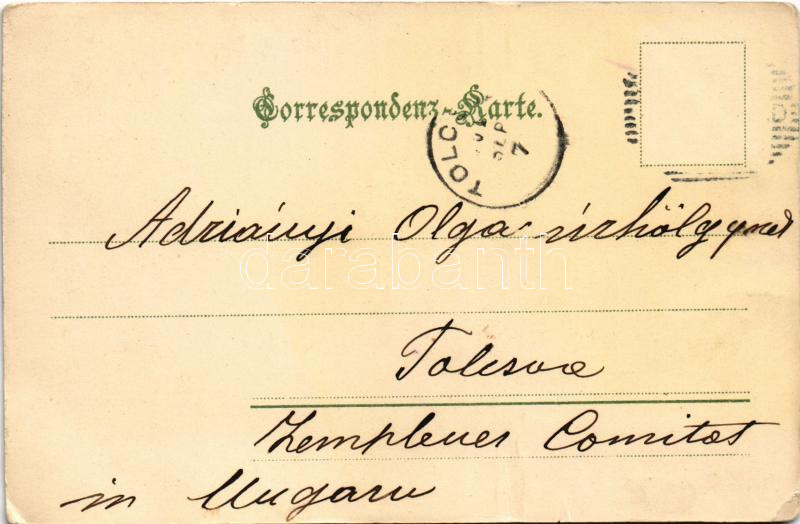 Correspondenz-Karte.
TOLCS
7
Adriányi Olga úrhölgynek
darabanth
Tolcsva
Zempléner Comitat
in Ungarn